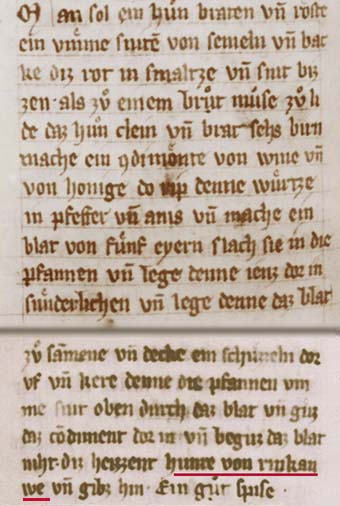 Man sol ein hůn braten vn̄ röste
ein snitē von semeln vn̄ bac
ke diz rot in smaltze vn̄ snit biz
zen als zů einem brůt můse zů li
de daz hůn clein vn̄ brat sehs birn
mache ein ꝯdimente von wine vn̄
von honige do rip denne würtze
in pfeffer vn̄ anis vn̄ mache ein
blat von fünf eyern slach sie in die
pfannen vn̄ lege denne ienz dor in
sünderlichen vn̄ lege denne daz blat
zů samene vn̄ decke ein schüzzeln dor
vf vn̄ kere denne die pfannen vm
me snit oben durch daz blat vn̄ giuz
daz cōdiment dor in vn̄ beguz daz blat
niht· diz heizzent hunre von rinkau
we vn̄ gibz hin· Ein gůt spise ·